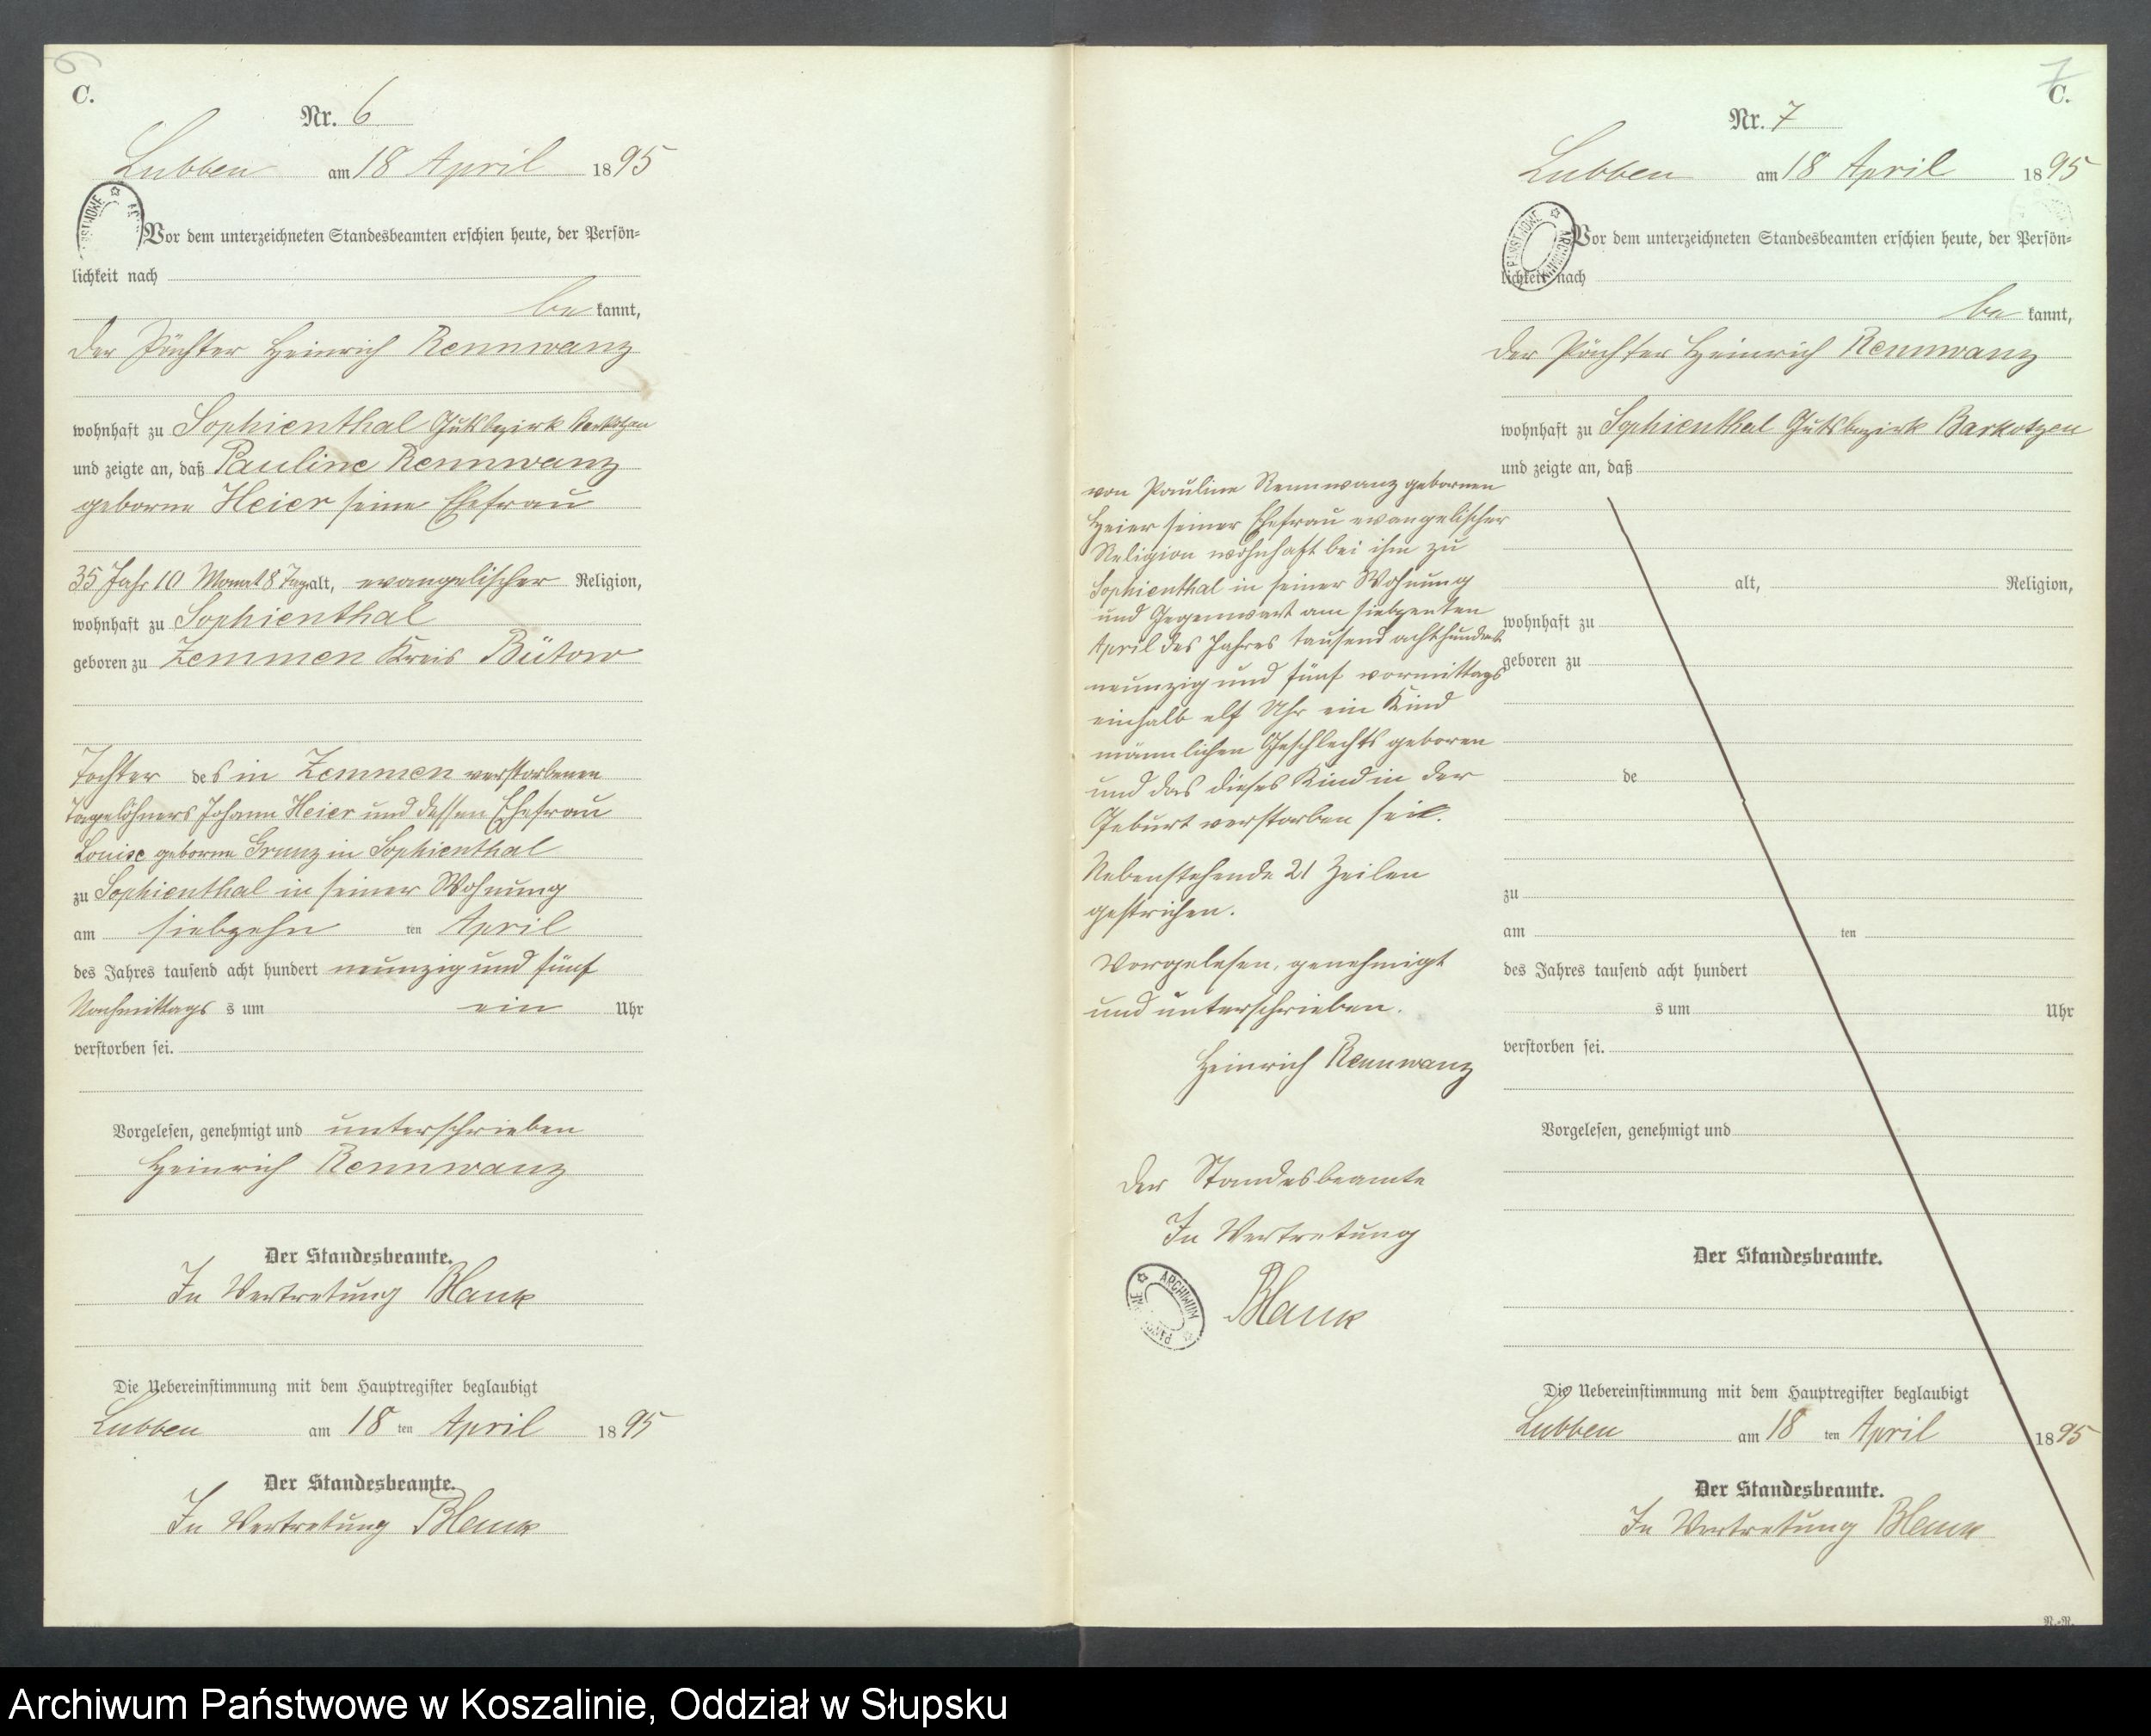 6
C.
Nr. 6
Lubben am 18 April 1895
Vor dem unterzeichneten Standesbeamten erschien heute, der Persön-
lichkeit nach
be kannt,
der Pächter Heinrich Rennwanz
wohnhaft zu Sophienthal Gutsbezirk Barkotzen
und zeigte an, daß Pauline Rennwanz
geborne Heier seine Ehefrau
35 Jahr 10 Monat 8 Tag alt, evangelischer Religion,
wohnhaft zu Sophienthal
geboren zu Zemmen Kreis Bütow
Tochter des in Zemmen verstorbenen
Tagelöhners Johann Heier und dessen Ehefrau
Louise geborne Granz in Sophienthal
zu Sophienthal in seiner Wohnung
am siebzehn ten April
des Jahres tausend acht hundert neunzig und fünf
Nachmittags s um ein Uhr
verstorben sei.
Vorgelesen, genehmigt und unterschrieben
Heinrich Rennwanz
Der Standesbeamte.
In Vertretung Blank
Die Uebereinstimmung mit dem Hauptregister beglaubigt
Lubben am 18 ten April 1895
Der Standesbeamte.
In Vertretung Blank
7
C.
Nr. 7
Lubben am 18 April 1895
ARCHIWUM PAŃSTWOWE
Vor dem unterzeichneten Standesbeamten erschien heute, der Persön-
lichkeit nach
be kannt,
der Pächter Heinrich Rennwanz
wohnhaft zu Sophienthal Gutsbezirk Barkotzen
und zeigte an, daß
von Pauline Rennwanz gebornen
Heier seiner Ehefrau evangelischer
Religion wohnhaft bei ihm zu
Sophienthal in seiner Wohnung
und Gegenwart am siebzenten
April des Jahres tausend achthundert
neunzig und fünf vormittags
einhalb elf Uhr ein Kind
männlichen Geschlechts geboren
und das dieses Kind in der
Geburt verstorben sei.
Nebenstehende 21 Zeilen
gestrichen.
Vorgelesen, genehmigt
und unterschrieben.
Heinrich Rennwanz
Der Standesbeamte
In Vertretung
Blank
alt, Religion,
wohnhaft zu
geboren zu
de
zu
am ten
des Jahres tausend acht hundert
s um Uhr
verstorben sei.
Vorgelesen, genehmigt und
Der Standesbeamte.
Die Uebereinstimmung mit dem Hauptregister beglaubigt
Lubben am 18 ten April 1895
Der Standesbeamte.
In Vertretung Blank
Archiwum Państwowe w Koszalinie, Oddział w Słupsku